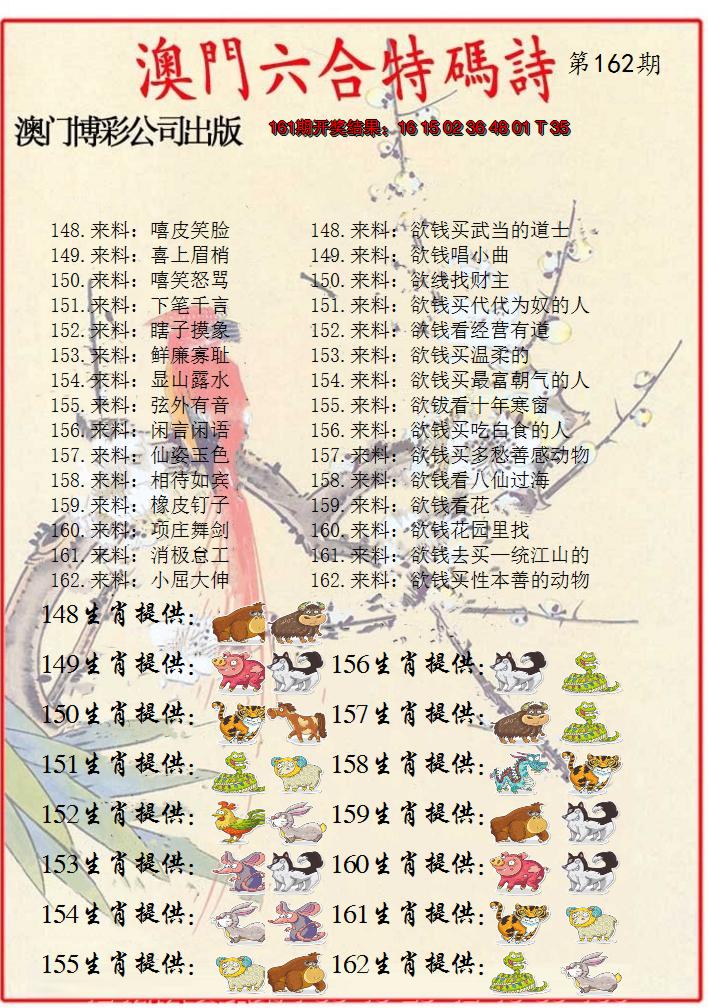 澳門六合特碼詩 第162期
澳门博彩公司出版 161期开奖结果：16 15 02 36 48 01 T 35
148.来料：嘻皮笑脸 148.来料：欲钱买武当的道士
149.来料：喜上眉梢 149.来料：欲钱唱小曲
150.来料：嘻笑怒骂 150.来料：欲线找财主
151.来料：下笔千言 151.来料：欲钱买代代为奴的人
152.来料：瞎子摸象 152.来料：欲钱看经营有道
153.来料：鲜廉寡耻 153.来料：欲钱买温柔的
154.来料：显山露水 154.来料：欲钱买最富朝气的人
155.来料：弦外有音 155.来料：欲钹看十年寒窗
156.来料：闲言闲语 156.来料：欲钱买吃白食的人
157.来料：仙姿玉色 157.来料：欲钱买多愁善感动物
158.来料：相待如宾 158.来料：欲钱看八仙过海
159.来料：橡皮钉子 159.来料：欲钱看花
160.来料：项庄舞剑 160.来料：欲钱花园里找
161.来料：消极怠工 161.来料：欲钱去买一统江山的
162.来料：小屈大伸 162.来料：欲钱买性本善的动物
148生肖提供：
149生肖提供： 156生肖提供：
150生肖提供： 157生肖提供：
151生肖提供： 158生肖提供：
152生肖提供： 159生肖提供：
153生肖提供： 160生肖提供：
154生肖提供： 161生肖提供：
155生肖提供： 162生肖提供：